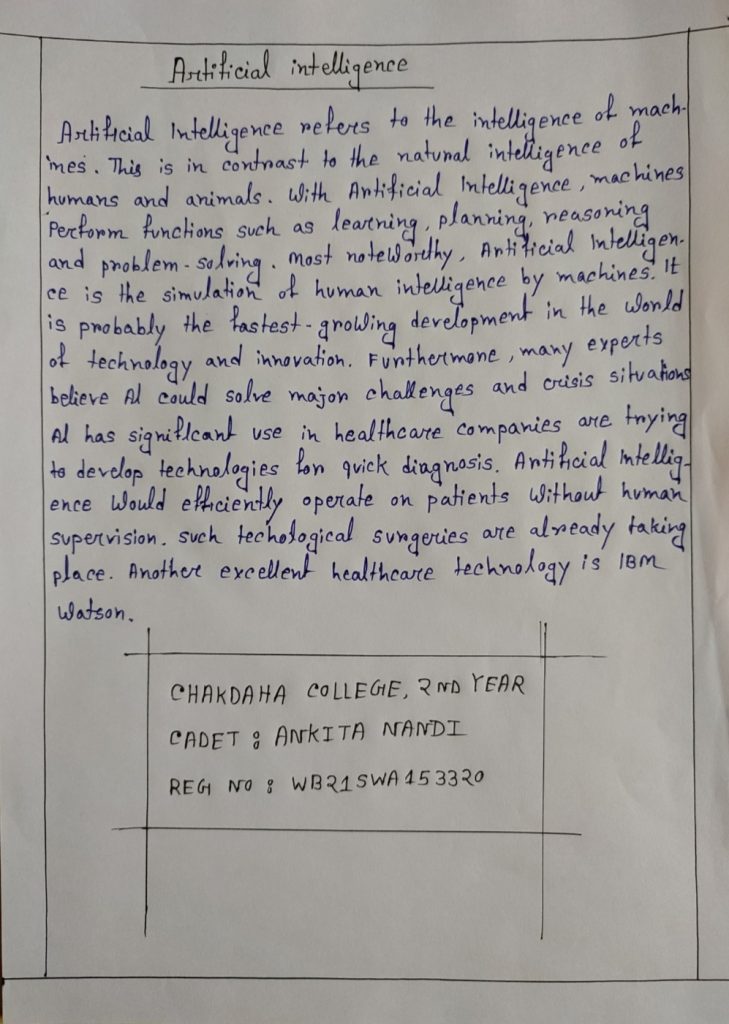 Artificial intelligence
Artificial Intelligence refers to the intelligence of mach-
ines. This is in contrast to the natural intelligence of
humans and animals. With Artificial Intelligence, machines
Perform functions such as learning, planning, reasoning
and problem-solving. Most noteworthy, Artificial Intelligen-
ce is the simulation of human intelligence by machines. It
is probably the fastest-growing development in the World
of technology and innovation. Furthermore, many experts
believe AI could solve major challenges and crisis situations
AI has significant use in healthcare companies are trying
to develop technologies for quick diagnosis. Artificial Intellig-
ence Would efficiently operate on patients Without human
supervision. Such techological surgeries are already taking
place. Another excellent healthcare technology is IBM
Watson.
CHAKDAHA COLLEGE, 2ND YEAR
CADET : ANKITA NANDI
REG NO : WB21SWA153320